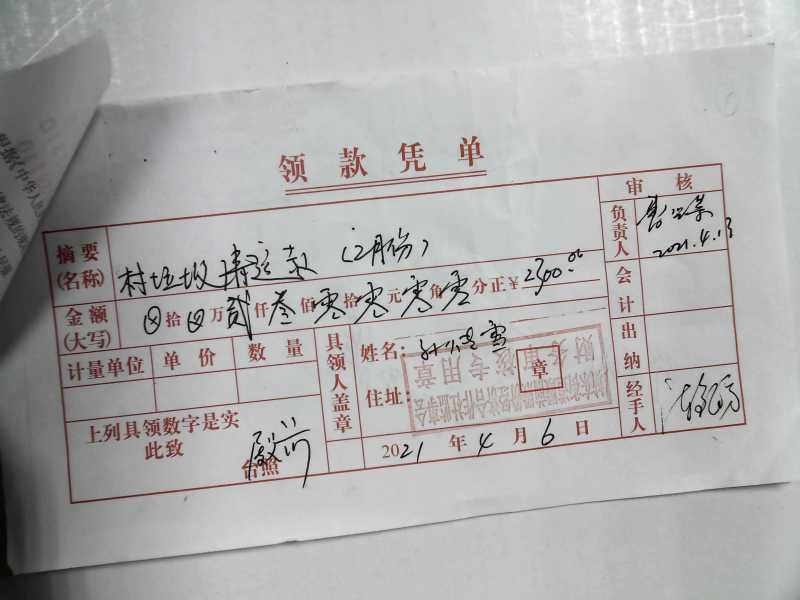 领款凭单
审核
摘要
(名称)
村垃圾清运款（2月份）
负责人
2021.4.13
金额
(大写)
⊗拾⊗万贰仟叁佰零拾零元零角零分正￥2300.00
会计
计量单位 单价 数量
具领人盖章
姓名：
住址：
章
财务审核专用章
出纳
上列具领数字是实
此致
台照
2021年4月6日
经手人